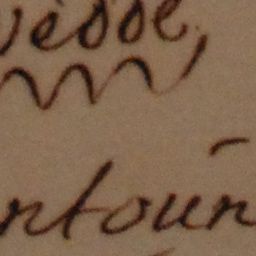 vèdde,
ntoun